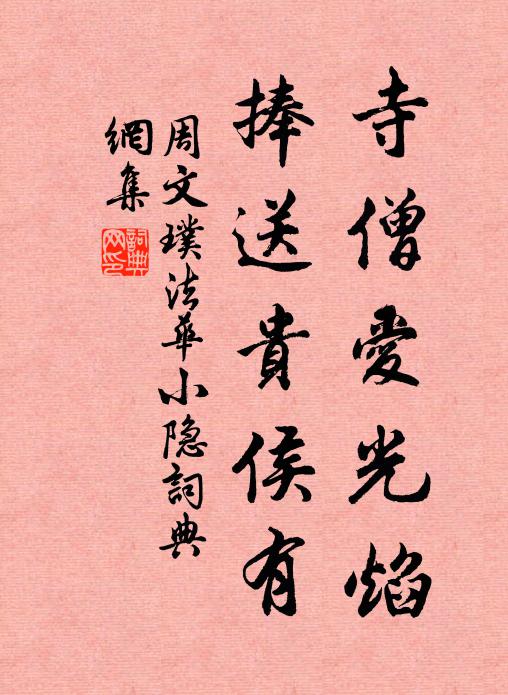 寺僧愛光焰
捧送貴侯有
周文璞法華小隐詞典
網集
詞典網印